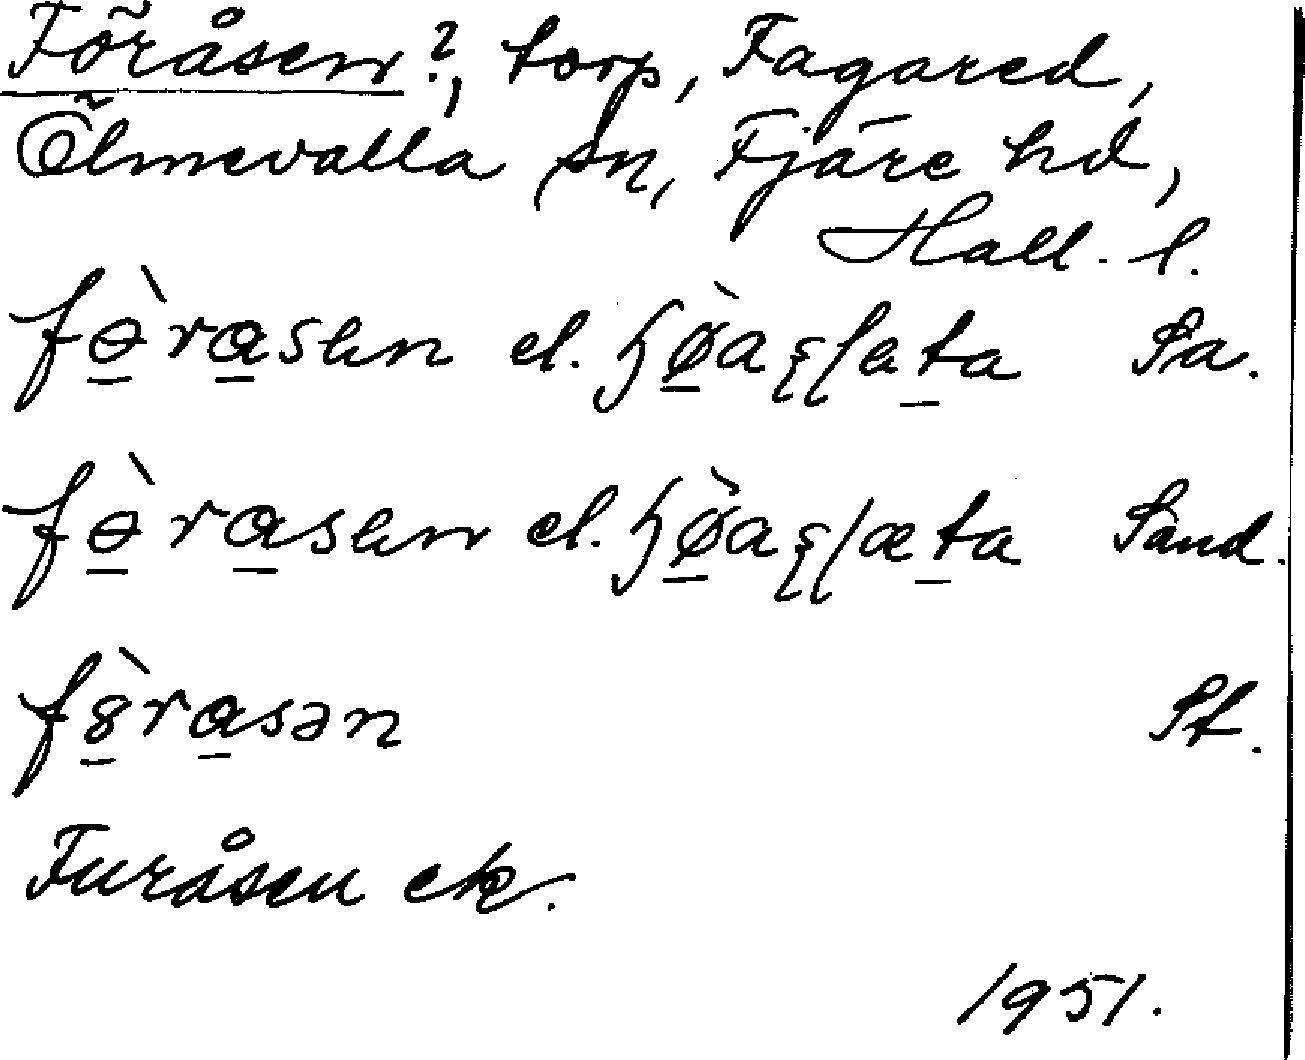 Föråsen?, torp, Fagared,
Ölmevalla sn, Fjäre hd,
Hall. l.
fɵ̠̀ra̠sen el. Sa.
fɵ̠̀ra̠sen el. Sand.
f8̠̀ra̠sən St.
Furåsen ek.
1951.